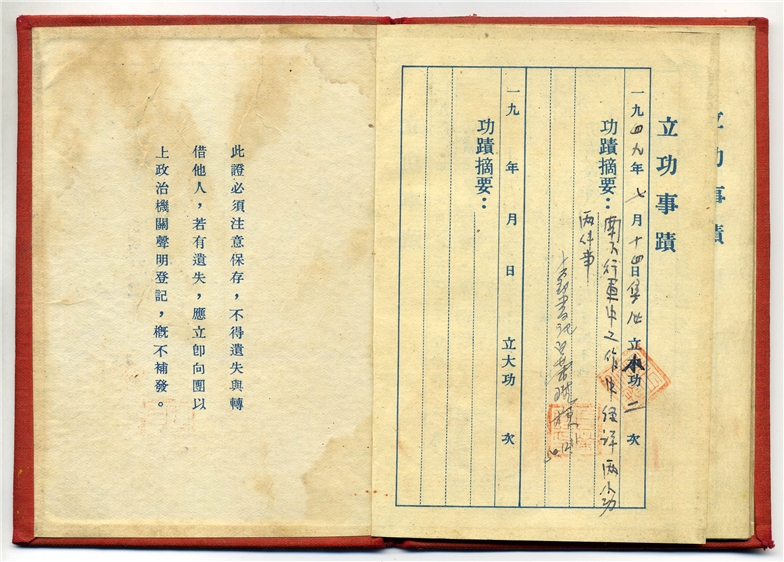 立功事蹟
一九四九年七月十四日 立小功二次
功蹟摘要：南下行軍中工作中经评两小功
兩件事
50.12.1
一九 年 月 日 立大功 次
功蹟摘要：
此證必須注意保存，不得遺失與轉
借他人，若有遺失，應立卽向團以
上政治機關聲明登記，概不補發。